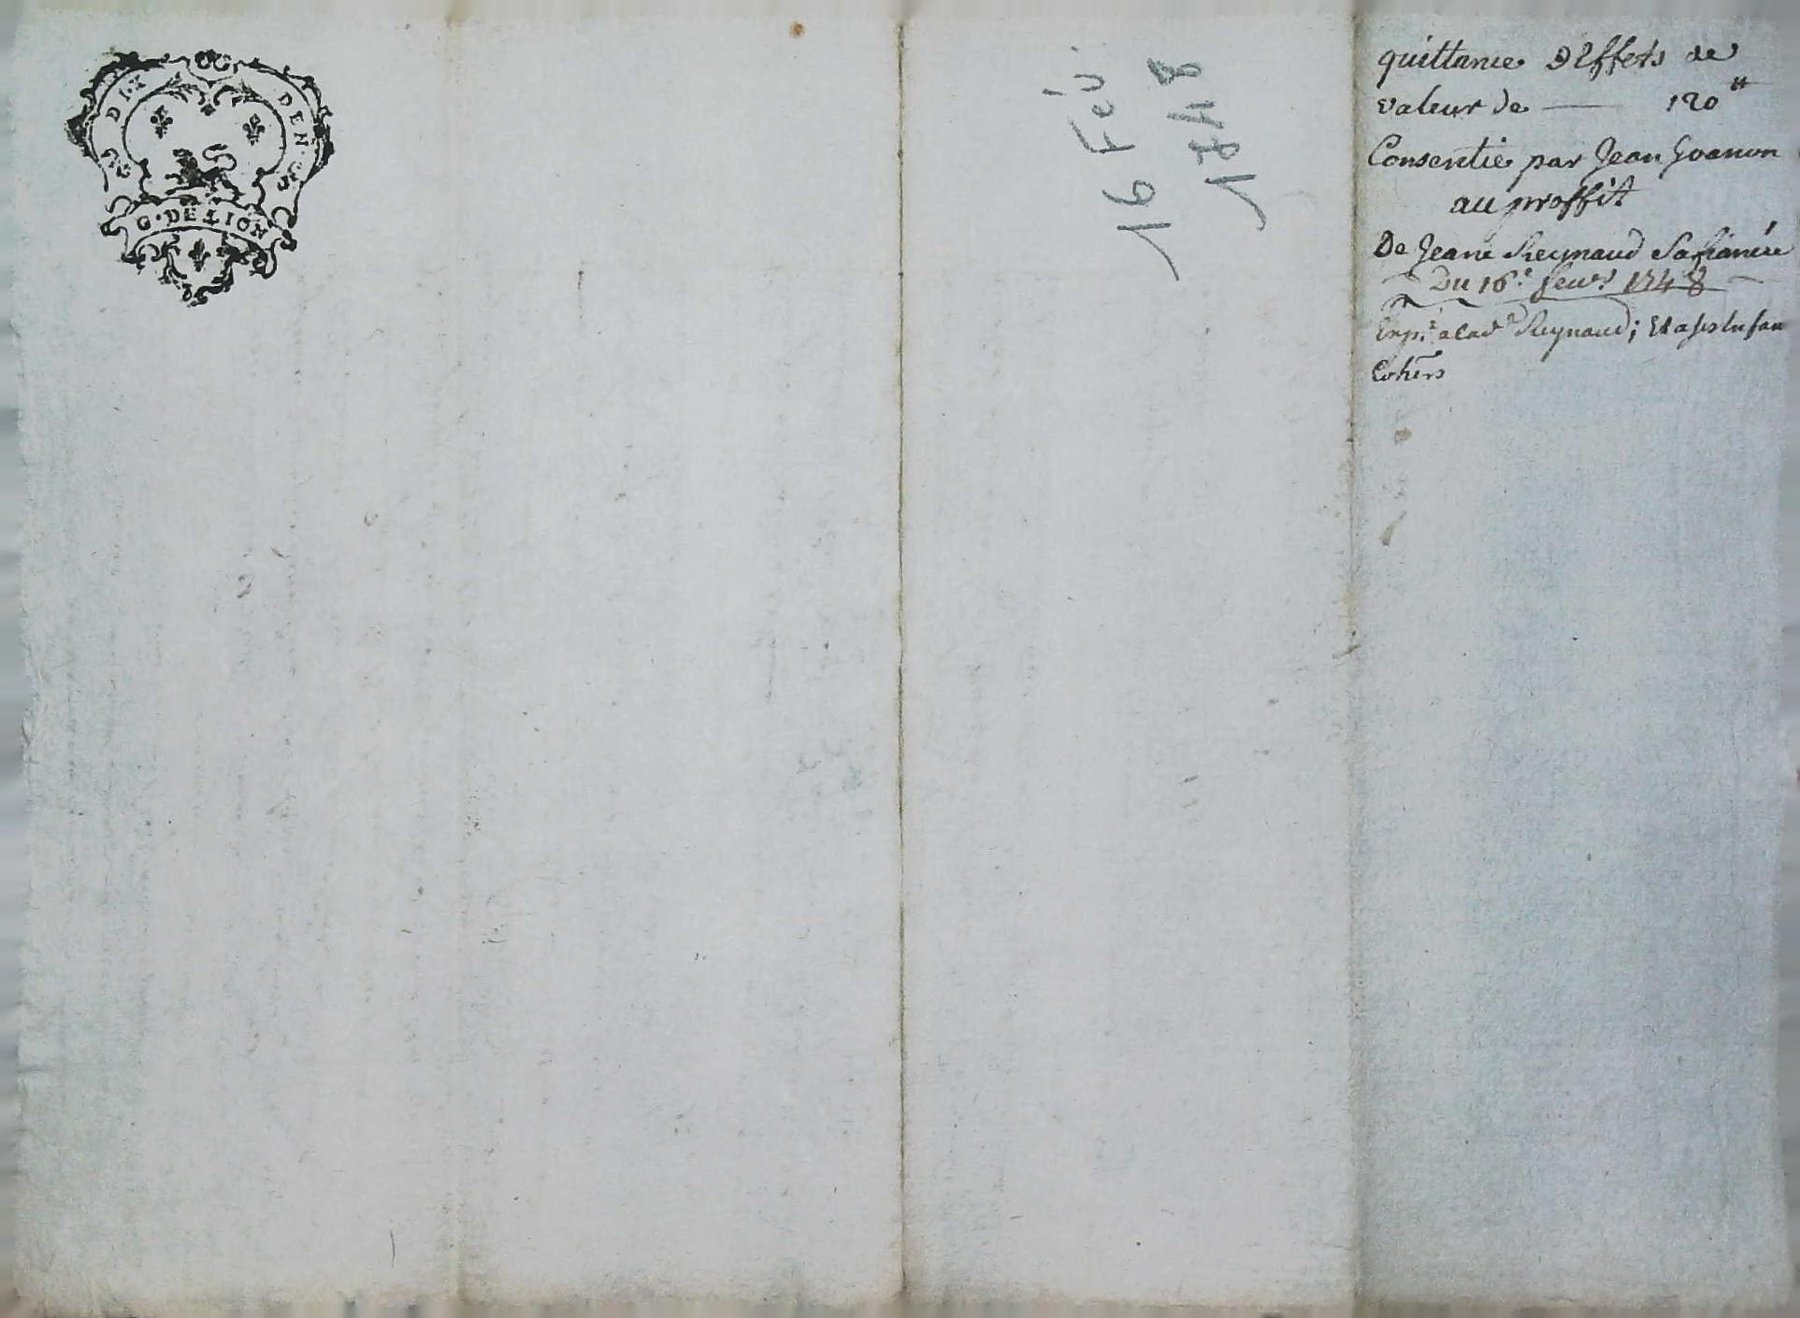 DIX DEN.RS
G.DE LION
16 Fev.
1748
quittance d'Effets de
valeur de — 120"
Consentie par Jean Goanon
au proffit
De Jeane Reynaud Sa
Du 16.e fevr 1748
Exp.e a lad.e Reynaud; Et a